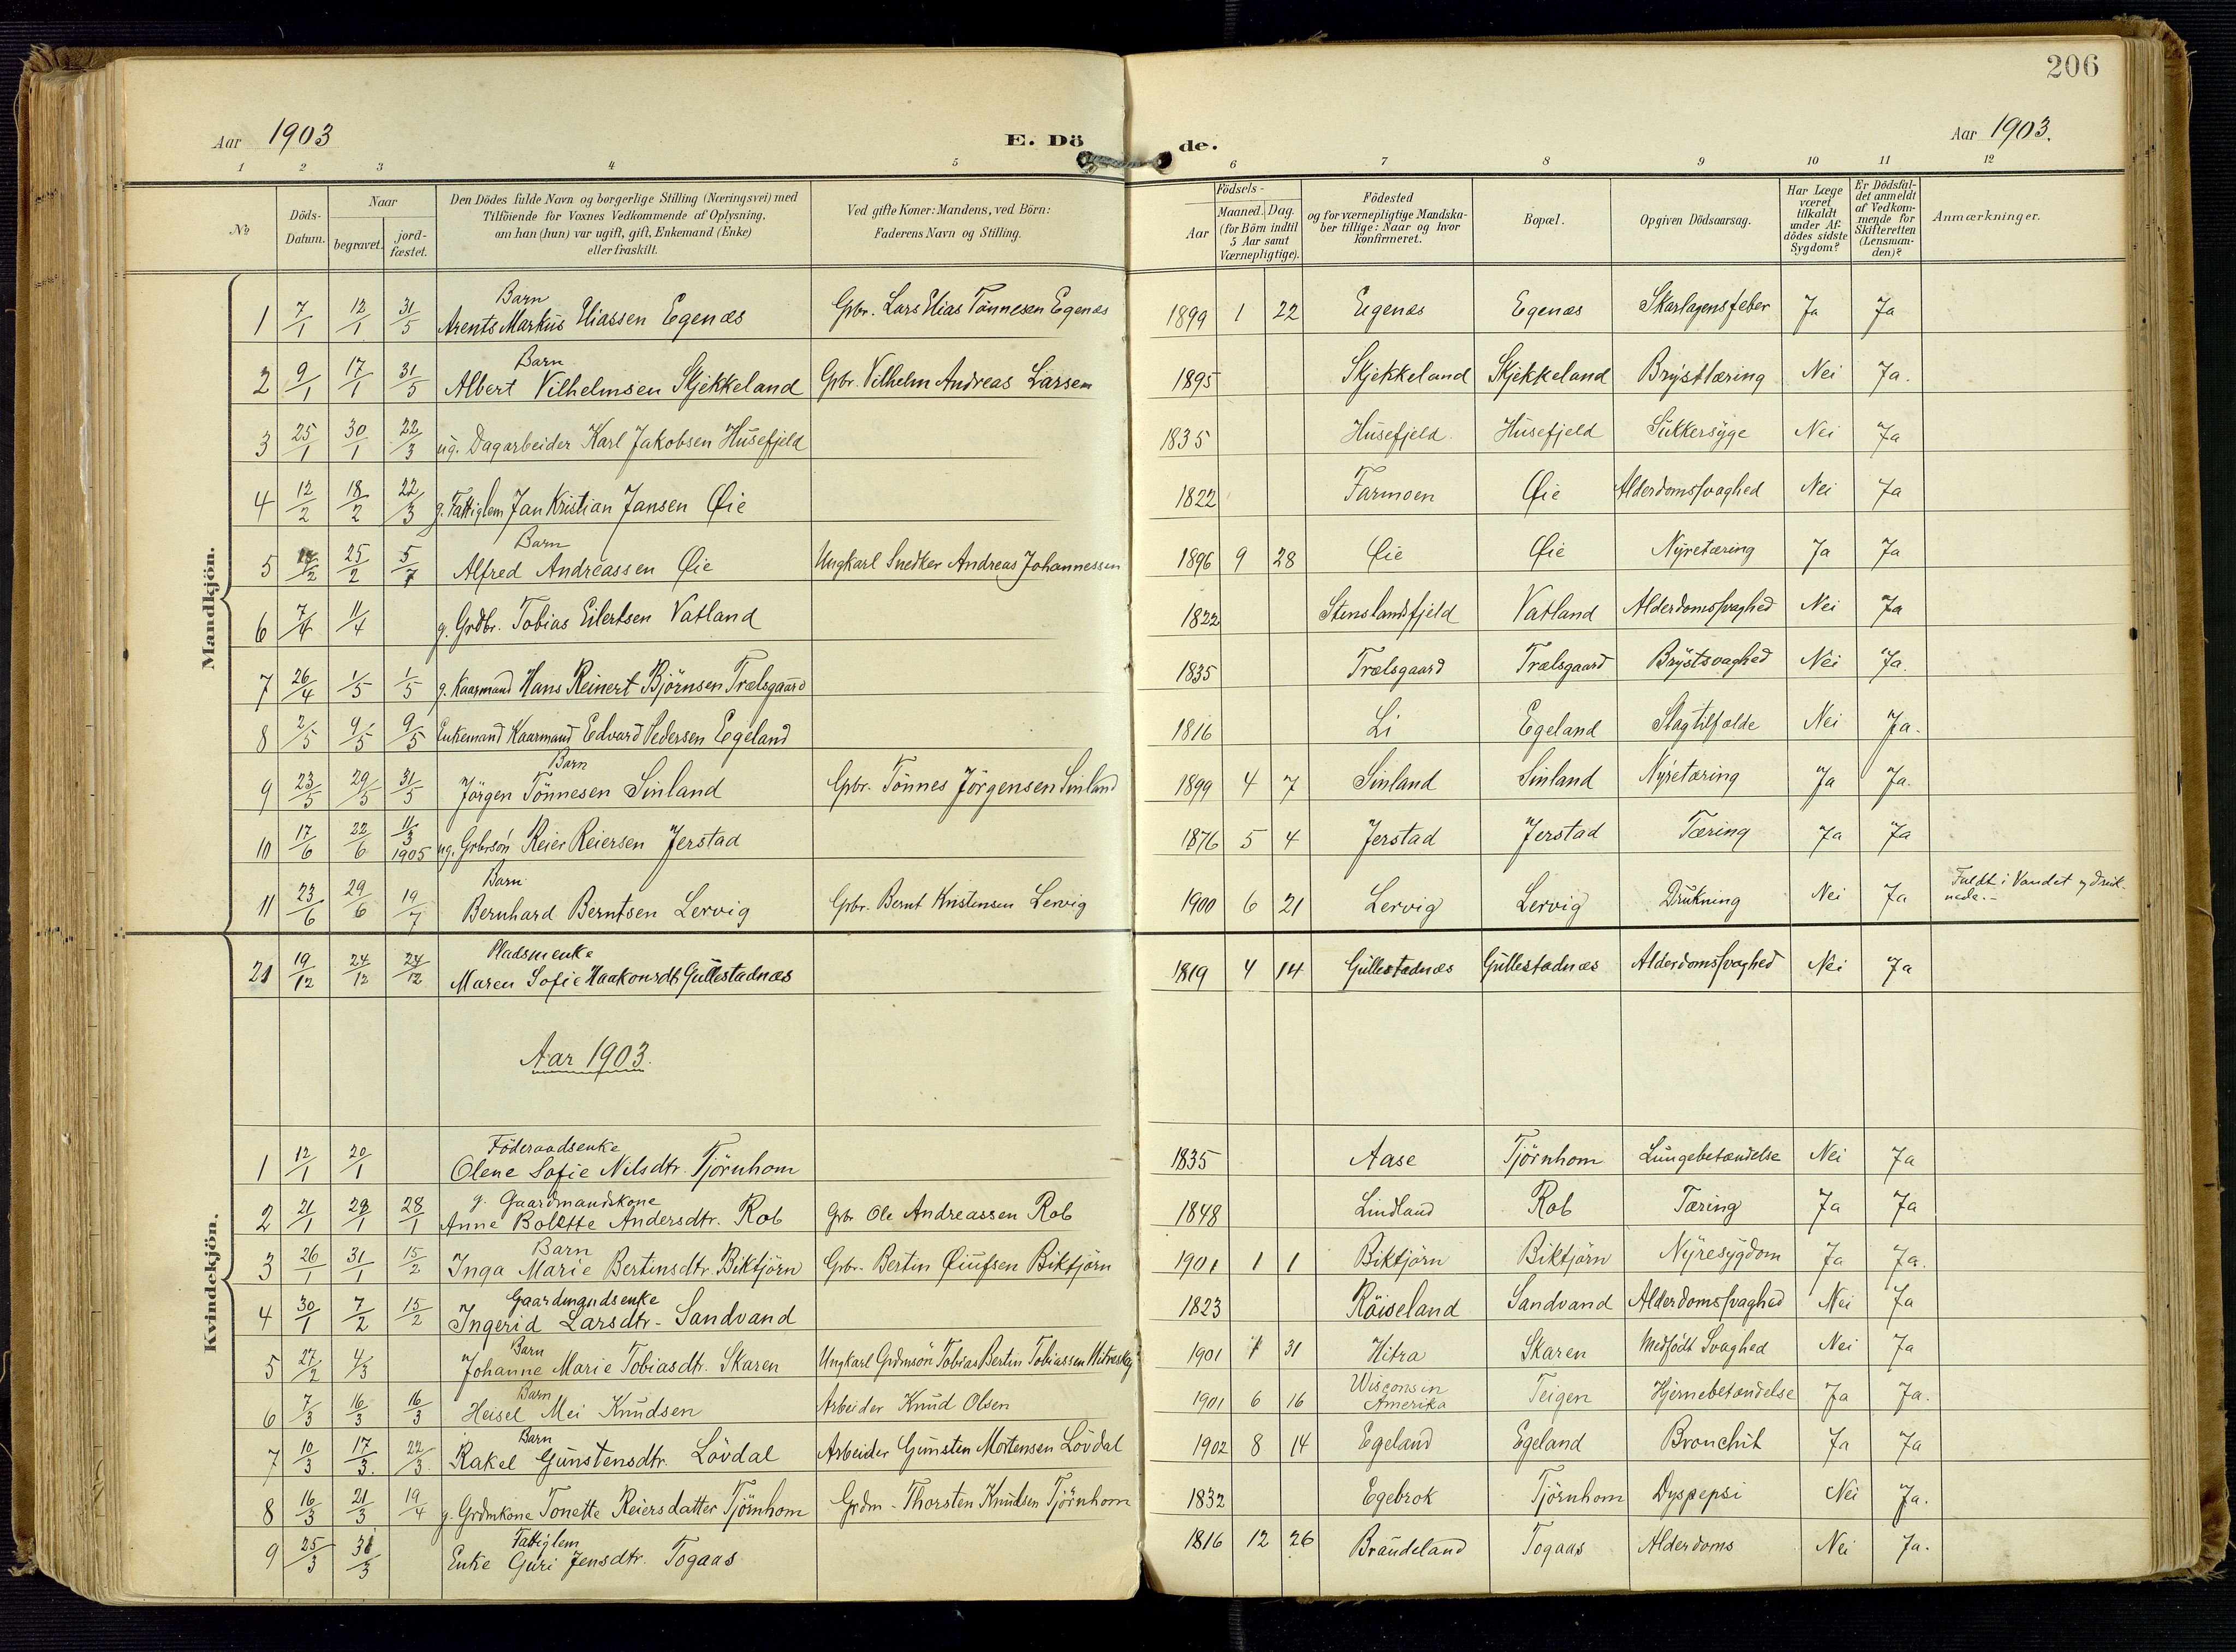 206
Aar 1903
E. Dö de.
Aar 1903.
1 2 3 4 5 6 7 8 9 10 11 12
№
Döds-Datum.
Naar
begravet. jord-fæstet.
Den Dödes fulde Navn og borgerlige Stilling (Næringsvei) med
Tilföiende for Voxnes Vedkommende af Oplysning,
om han (hun) var ugift, gift, Enkemand (Enke)
eller fraskilt.
Ved gifte Koner: Mandens, ved Börn:
Faderens Navn og Stilling.
Födsels-
Aar
Maaned. Dag.
(for Börn indtil
5 Aar samt
Værnepligtige).
Födested
og for værnepligtige Mandska-
ber tillige: Naar og hvor
konfirmeret.
Bopæl.
Opgiven Dödsaarsag.
Har Læge
været
tilkaldt
under Af-
dödes sidste
Sygdom?
Er Dödsfal-
det anmeldt
af Vedkom-
mende for
Skifteretten
(Lensman-
den)?
Anmærkninger.
Mandkjön.
Barn
1 7/1 12/1 31/5 Arents Markus Eliassen Egenæs Gbr. Lars Elias Tönnesen Egenæs 1899 1 22 Egenæs Egenæs Skarlagensfeber Ja Ja
Barn
2 9/1 17/1 31/5 Albert Vilhelmsen Skjekkeland Gbr. Vilhelm Andreas Larsen 1895 Skjekkeland Skjekkeland Brysttæring Nei Ja.
3 25/1 30/1 22/3 ug. Dagarbeider Karl Jakobsen Husefjeld 1835 Husefjeld Husefjeld Sukkersyge Nei Ja
4 12/2 18/2 22/3 g. Fattiglem Jan Kristian Jansen Øie 1822 Farmoen Øie Alderdomssvaghed Nei Ja
Barn
5 /2 25/2 5/7 Alfred Andreassen Øie Ungkarl Snedker Andreas Johannessen 1896 9 28 Øie Øie Nyretæring Ja Ja
6 7/4 11/4 g. Grdbr. Tobias Eilertsen Vatland 1822 Stenslandsfjeld Vatland Alderdomssvaghed Nei Ja
7 26/4 1/5 1/5 g. Kaarmand Hans Reinert Björnsen Trælsgaard 1835 Trælsgaard Trælsgaard Brystsvaghed Nei Ja.
8 2/5 9/5 9/5 Enkemand Kaarmand Edvard Pedersen Egeland 1816 Li Egeland Slagtilfælde Nei Ja.
Barn
9 23/5 29/5 31/5 Jörgen Tönnesen Sinland Gbr. Tönnes Jörgensen Sinland 1899 4 7 Sinland Sinland Nyretæring Ja Ja.
10 17/6 22/6 11/3 1905 ug. Gbrsön Reier Reiersen Jerstad 1876 5 4 Jerstad Jerstad Tæring Ja Ja
Barn
11 23/6 29/6 19/7 Bernhard Berntsen Lervig Gbr. Bernt Kristensen Lervig 1900 6 21 Lervig Lervig Drukning Nei Ja Faldt i Vandet og druk-
nede.-
Pladsmenke
21 19/12 24/12 24/12 Maren Sofie Haakonsdtr Gullestadnæs 1819 4 14 Gullestadnæs Gullestadnæs Alderdomssvaghed Nei Ja
Aar 1903.
Kvindekjön.
Föderaadsenke
1 12/1 20/1 Olene Sofie Nilsdtr. Tjörnhom 1835 Aase Tjörnhom Lungebetændelse Nei Ja
g. Gaardmandskone
2 21/1 28/1 28/1 Anne Bolette Andersdtr. Rob Gbr. Ole Andreassen Rob 1848 Lindland Rob Tæring Ja Ja
Barn
3 26/1 31/1 15/2 Inga Marie Bertinsdtr. Biktjörn Gbr. Bertin Øiufsen Biktjörn 1901 1 1 Biktjörn Biktjörn Nyresygdom Ja Ja.
Gaardmandsenke
4 30/1 7/2 15/2 Ingerid Larsdtr- Sandvand 1823 Röiseland Sandvand Alderdomssvaghed Nei Ja
Barn
5 27/2 4/3 Johanne Marie Tobiasdtr. Skaren Ungkarl Grdmsön Tobias Bertin Tobiassen 1901 1 31 Hitra Skaren Medfödt Svaghed Nei Ja
Barn
6 7/3 16/3 16/3 Heisel Mei Knudsen Arbeider Knud Olsen 1901 6 16 Wisconsin Amerika Teigen Hjernebetændelse Ja Ja.
Barn
7 10/3 17/3. 22/3 Rakel Gunstensdtr. Lövdal Arbeider Gunsten Mortensen Lövdal 1902 8 14 Egeland Egeland Bronchit Ja Ja
8 16/3 21/3 19/4 g. Grdmkone Tonette Reiersdatter Tjörnhom Grdm- Thorsten Knudsen Tjörnhom 1832 Egebrok Tjörnhom Dyspepsi Nei Ja.
Fattiglem
9 25/3 31/3 Enke Guri Jensdtr. Togaas 1816 12 26 Braudeland Togaas Alderdoms Nei Ja.